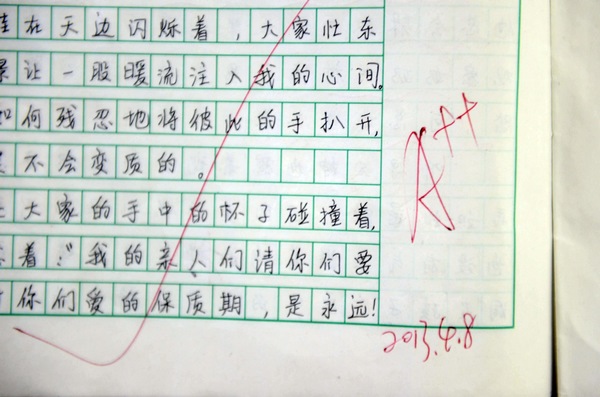 在天边闪烁着，大家忙东
让一股暖流注入我的心间。
如何残忍地将彼此的手扒开，
不会变质的。
大家的手中的杯子碰撞着，
着：“我的亲人们请你们要
你们爱的保质期，是永远！
A++
2013.4.8